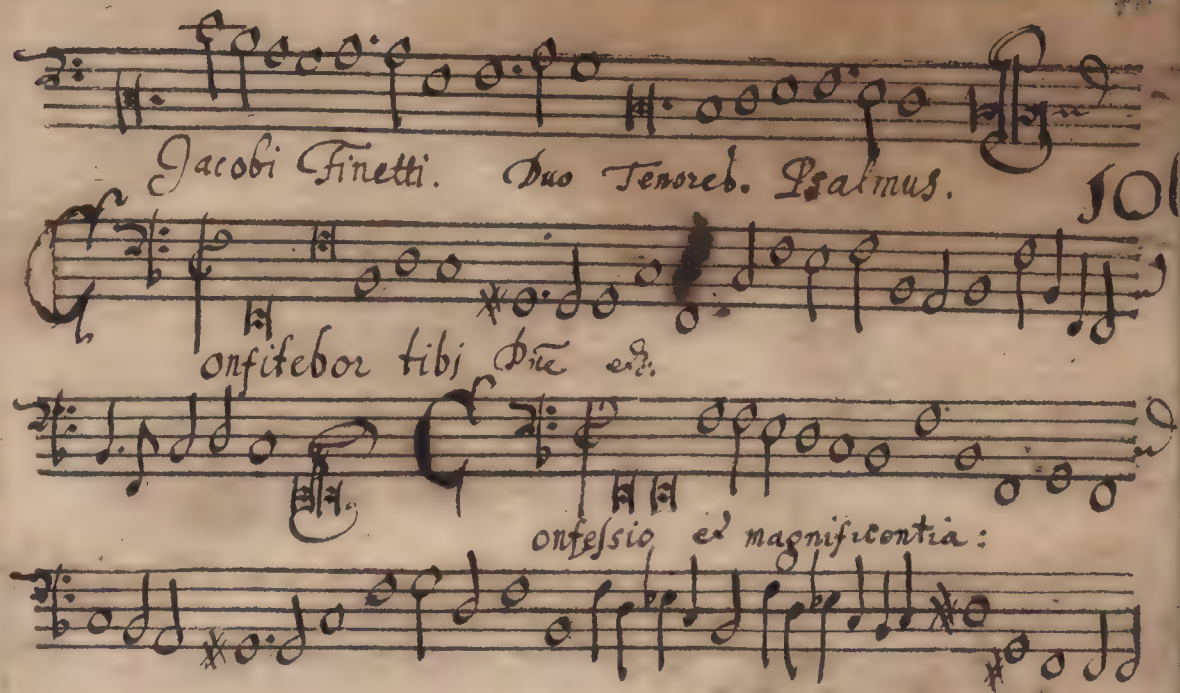 Jacobi Finetti. Duo Tenores. Psalmus. 101
Confitebor tibi Dñe etc.
Confessio et magnificentia: